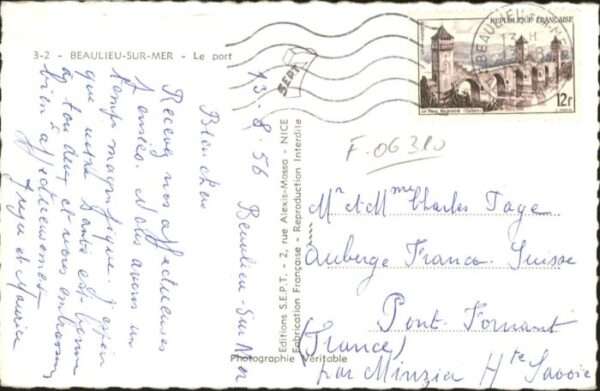 3-2 - BEAULIEU-SUR-MER - Le port
S.E.P.T.
13-8-56 Beaulieu-Sur-Mer
Bien chers
Recevez nos affectueuses
pensées. Nous avons un
temps magnifique. J'espère
que votre santé est bonne
à tous deux et vous embrassons
bien affectueusement
et Maurice
Editions S.E.P.T. - 2, rue Alexis-Mossa - NICE
Fabrication Française - Reproduction Interdite
Photographie Véritable
BEAULIEU-S-MER
13 H
RÉPUBLIQUE FRANÇAISE
12f
F. 06310
Mr et Mme Charles Taye
Auberge Franco-Suisse
Pont-Fornant
(France)
par Minzier Hte Savoie